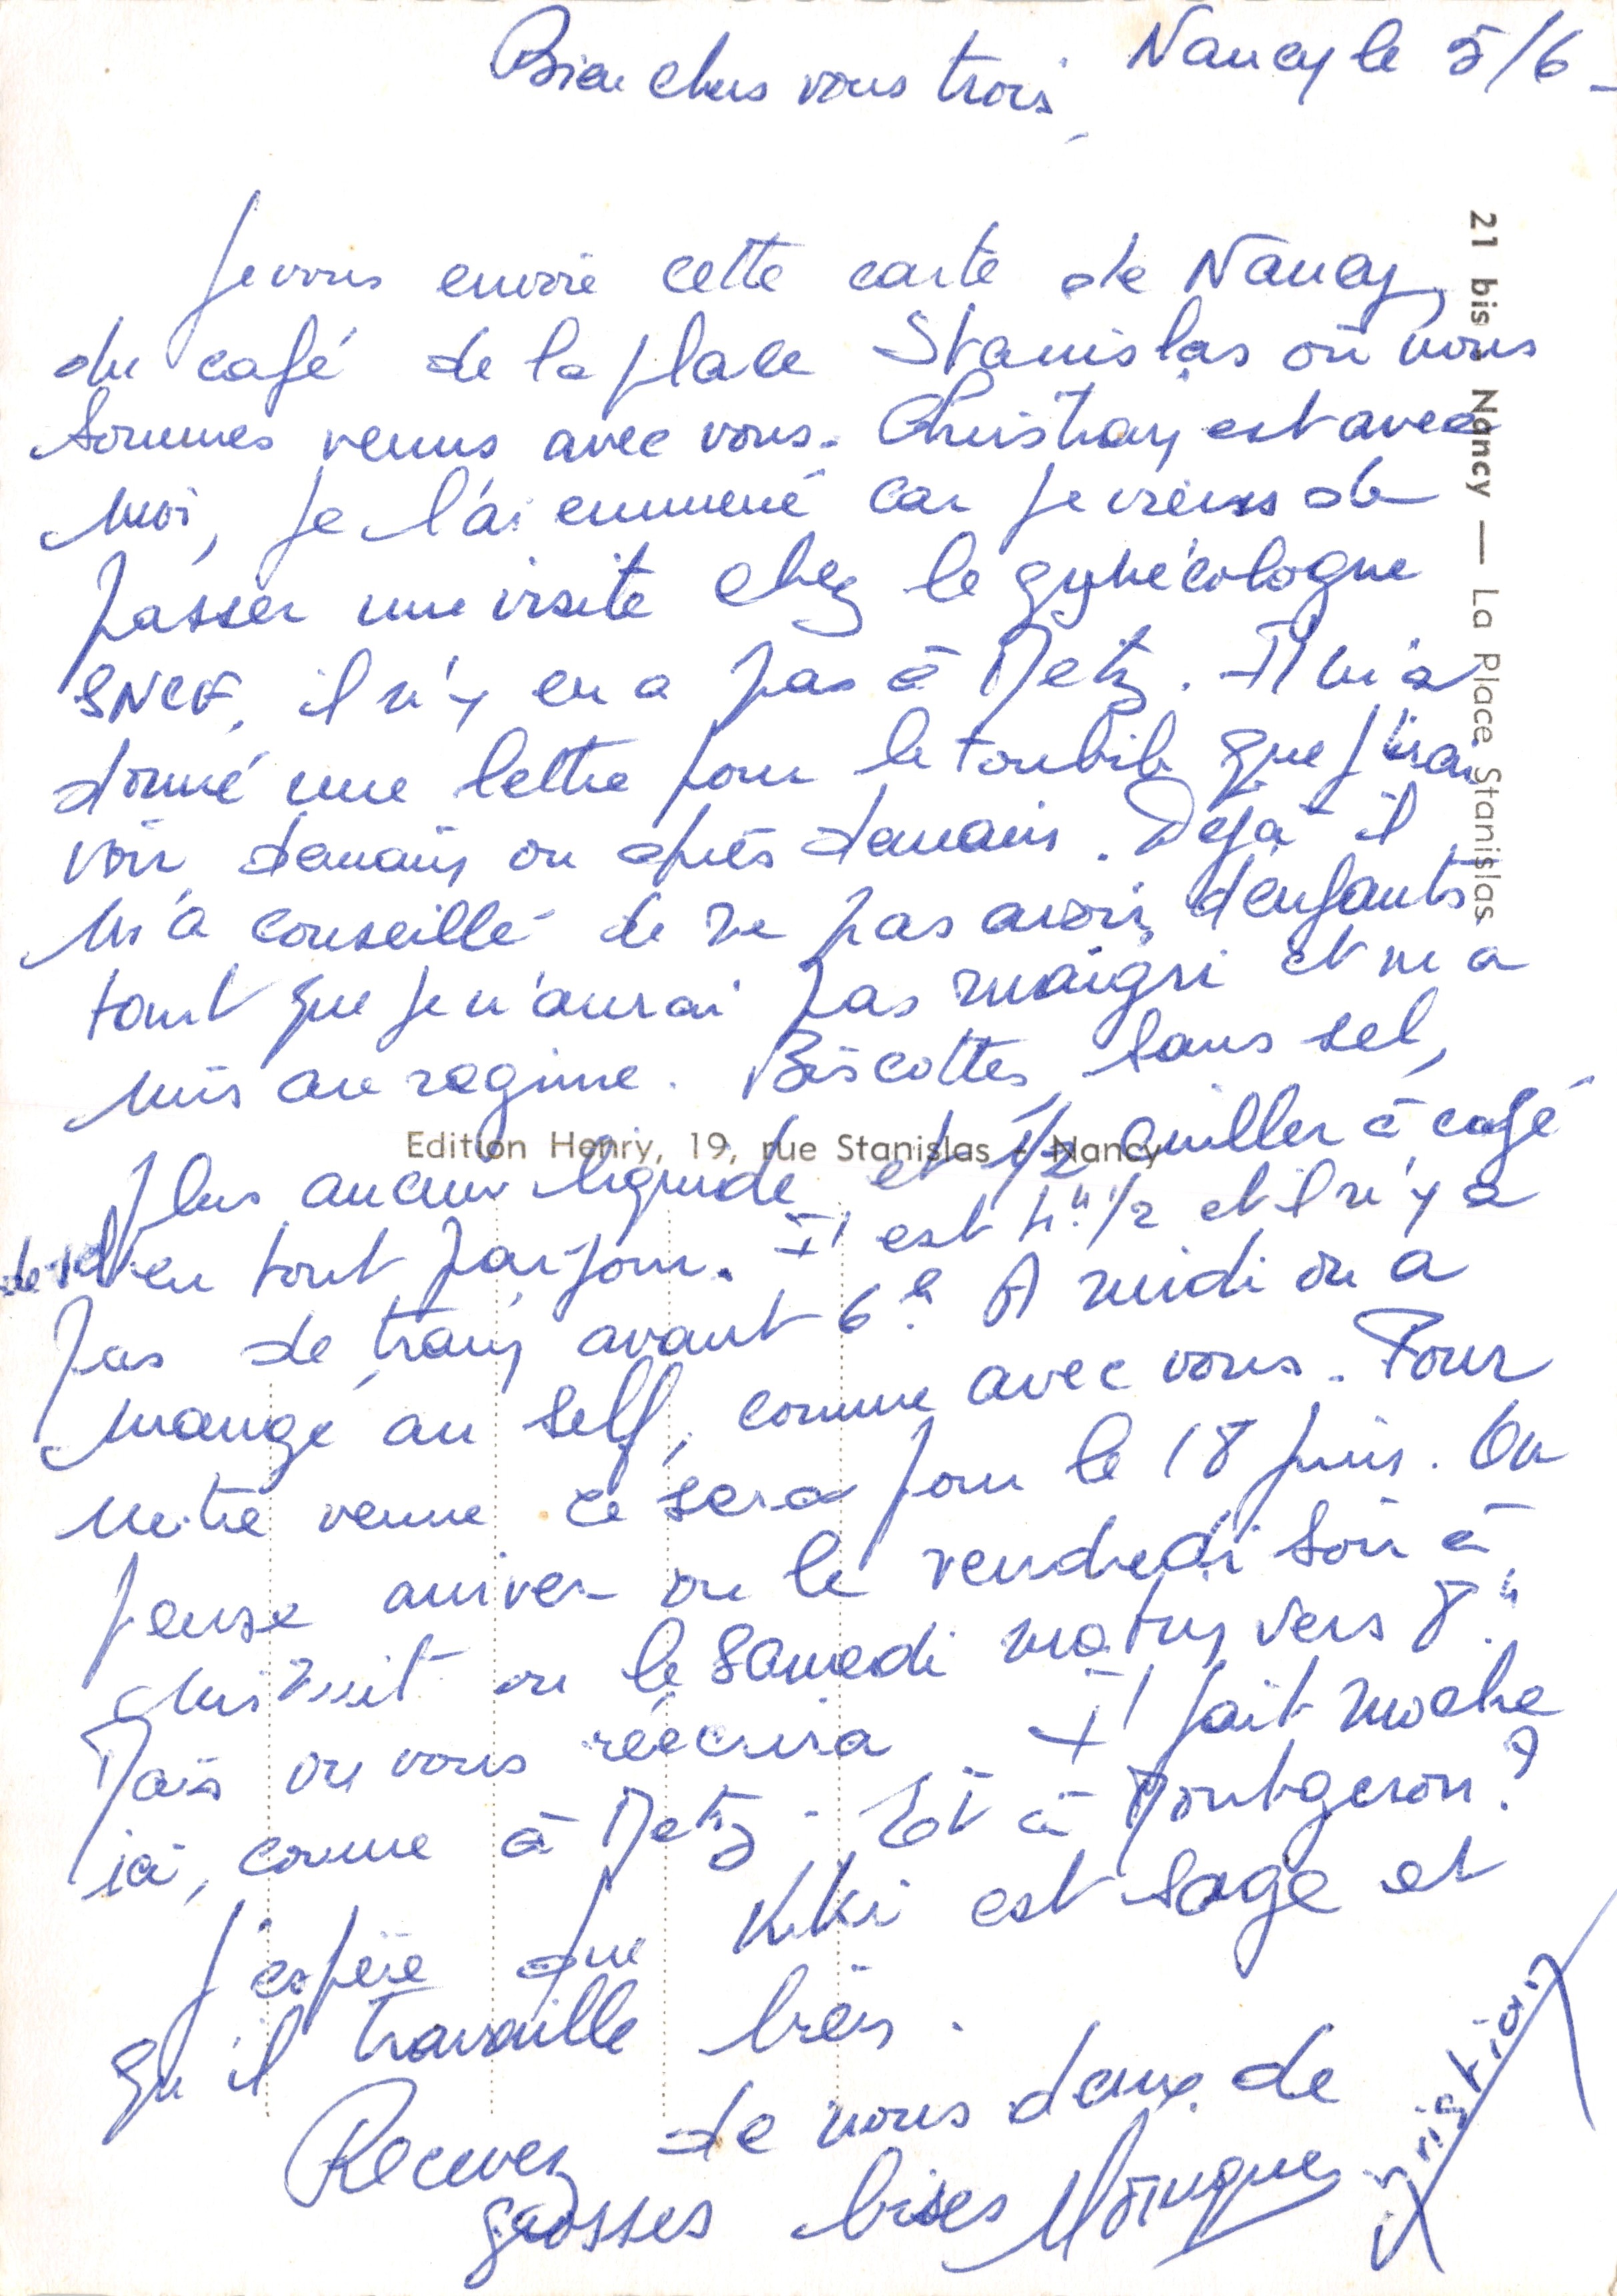 Nancy le 5/6 -
Bien chers vous trois,
Je vous envoie cette carte de Nancy,
du café de la place Stanislas où nous
sommes venus avec vous. Christian est avec
moi, je l'ai emmené car je viens de
passer une visite chez le gynécologue
SNCF, il n'y en a pas à Metz. Il m'a
donné une lettre pour le toubib que j'irai
voir demain ou après demain. Déjà il
m'a conseillé de ne pas avoir d'enfants
tant que je n'aurai pas maigri et m'a
mis au régime. Biscottes, sans sel,
plus aucun liquide et 1/2 cuiller à café
de sel en tout par jour. Il est 4h 1/2 et il n'y a
pas de train avant 6h. A midi on a
mangé au self, comme avec vous. Pour
notre venue ce sera pour le 18 juin. On
pense arriver ou le vendredi soir à
minuit ou le samedi matin vers 8h.
Mais on vous réécrira. Il fait moche
ici, comme à Metz. Et à Montgeron ?
J'espère que Kiki est sage et
qu'il travaille bien.
Recevez de nous deux de
grosses bises Monique
Christian
21 bis Nancy — La Place Stanislas
Edition Henry, 19, rue Stanislas - Nancy